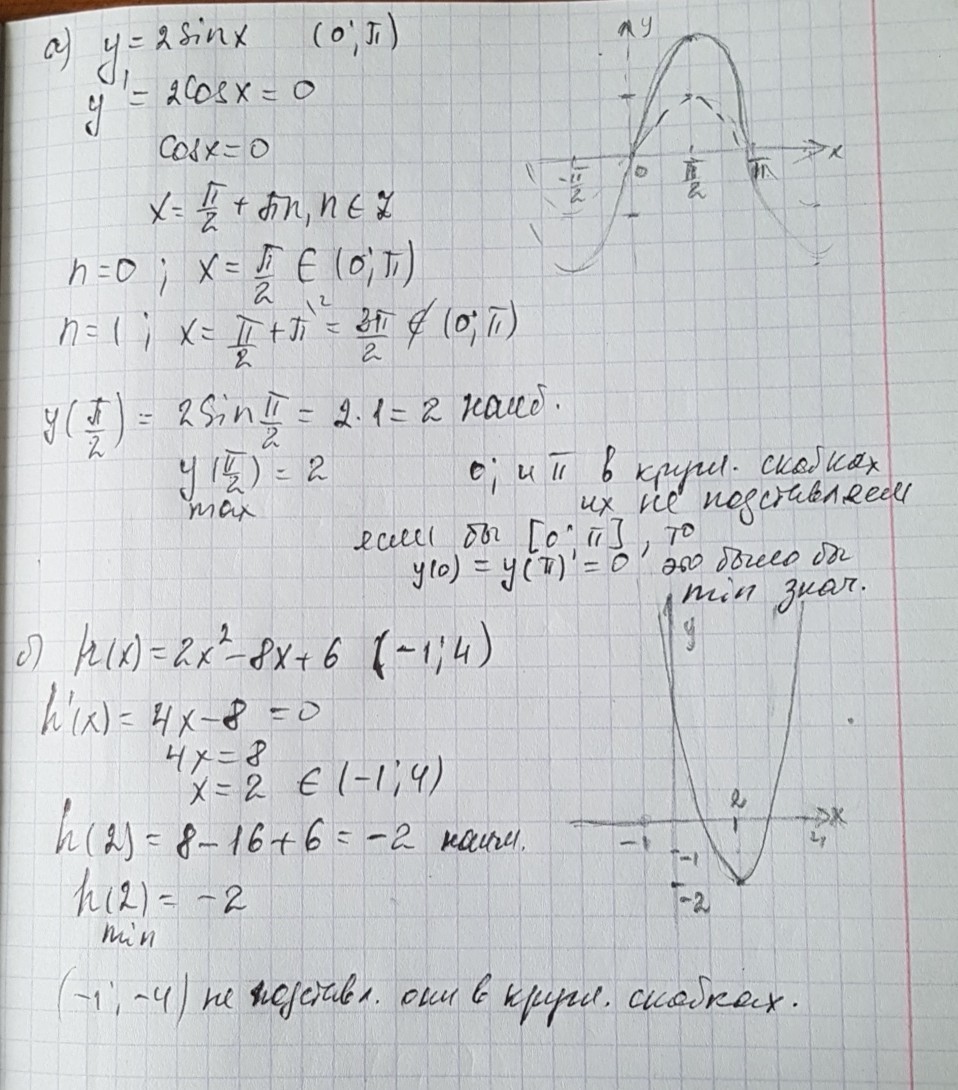 а) y = 2sinx (0; π)
y' = 2cosx = 0
cosx = 0
x = π/2 + πn, n ∈ Z
n = 0 ; x = π/2 ∈ (0; π)
n = 1 ; x = π/2 + π\² = 3π/2 ∉ (0; π)
y(π/2) = 2sin π/2 = 2·1 = 2 наиб.
y(π/2) = 2
max
0; и π в кругл. скобках
их не подставляем
если бы [0; π], то
y(0) = y(π) = 0 это было бы
min знач.
y
x
-π/2
0
π/2
π
б) h(x) = 2x² - 8x + 6 (-1; 4)
h'(x) = 4x - 8 = 0
4x = 8
x = 2 ∈ (-1; 4)
h(2) = 8 - 16 + 6 = -2 наим.
h(2) = -2
min
y
x
-1
2
4
-1
-2
(-1; -4) не подставл. они в кругл. скобках.